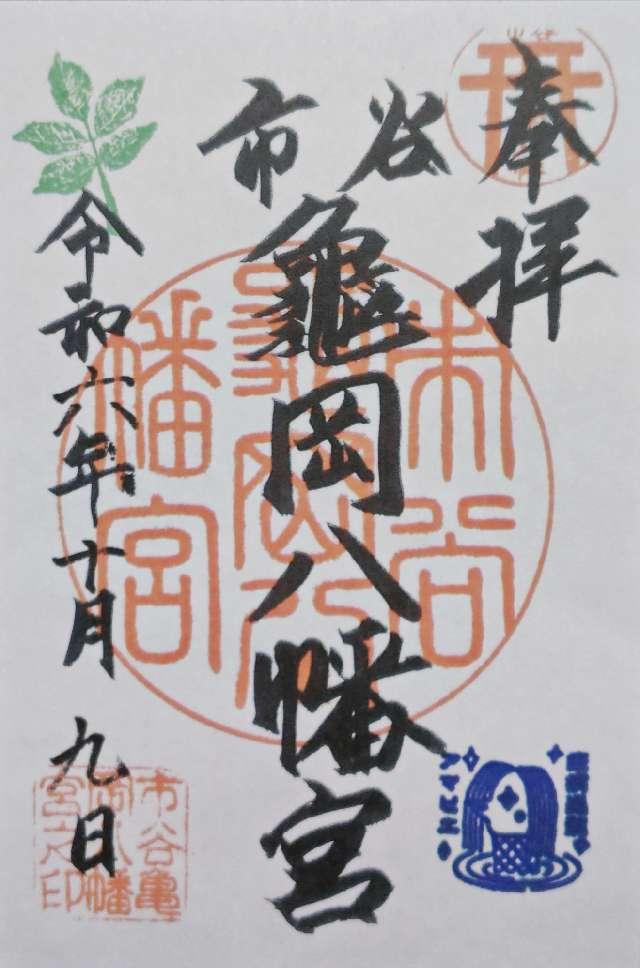 奉拝
市谷
亀岡八幡宮
令和六年十月九日
市谷
亀岡八
幡宮
市谷亀
岡八幡
宮之印